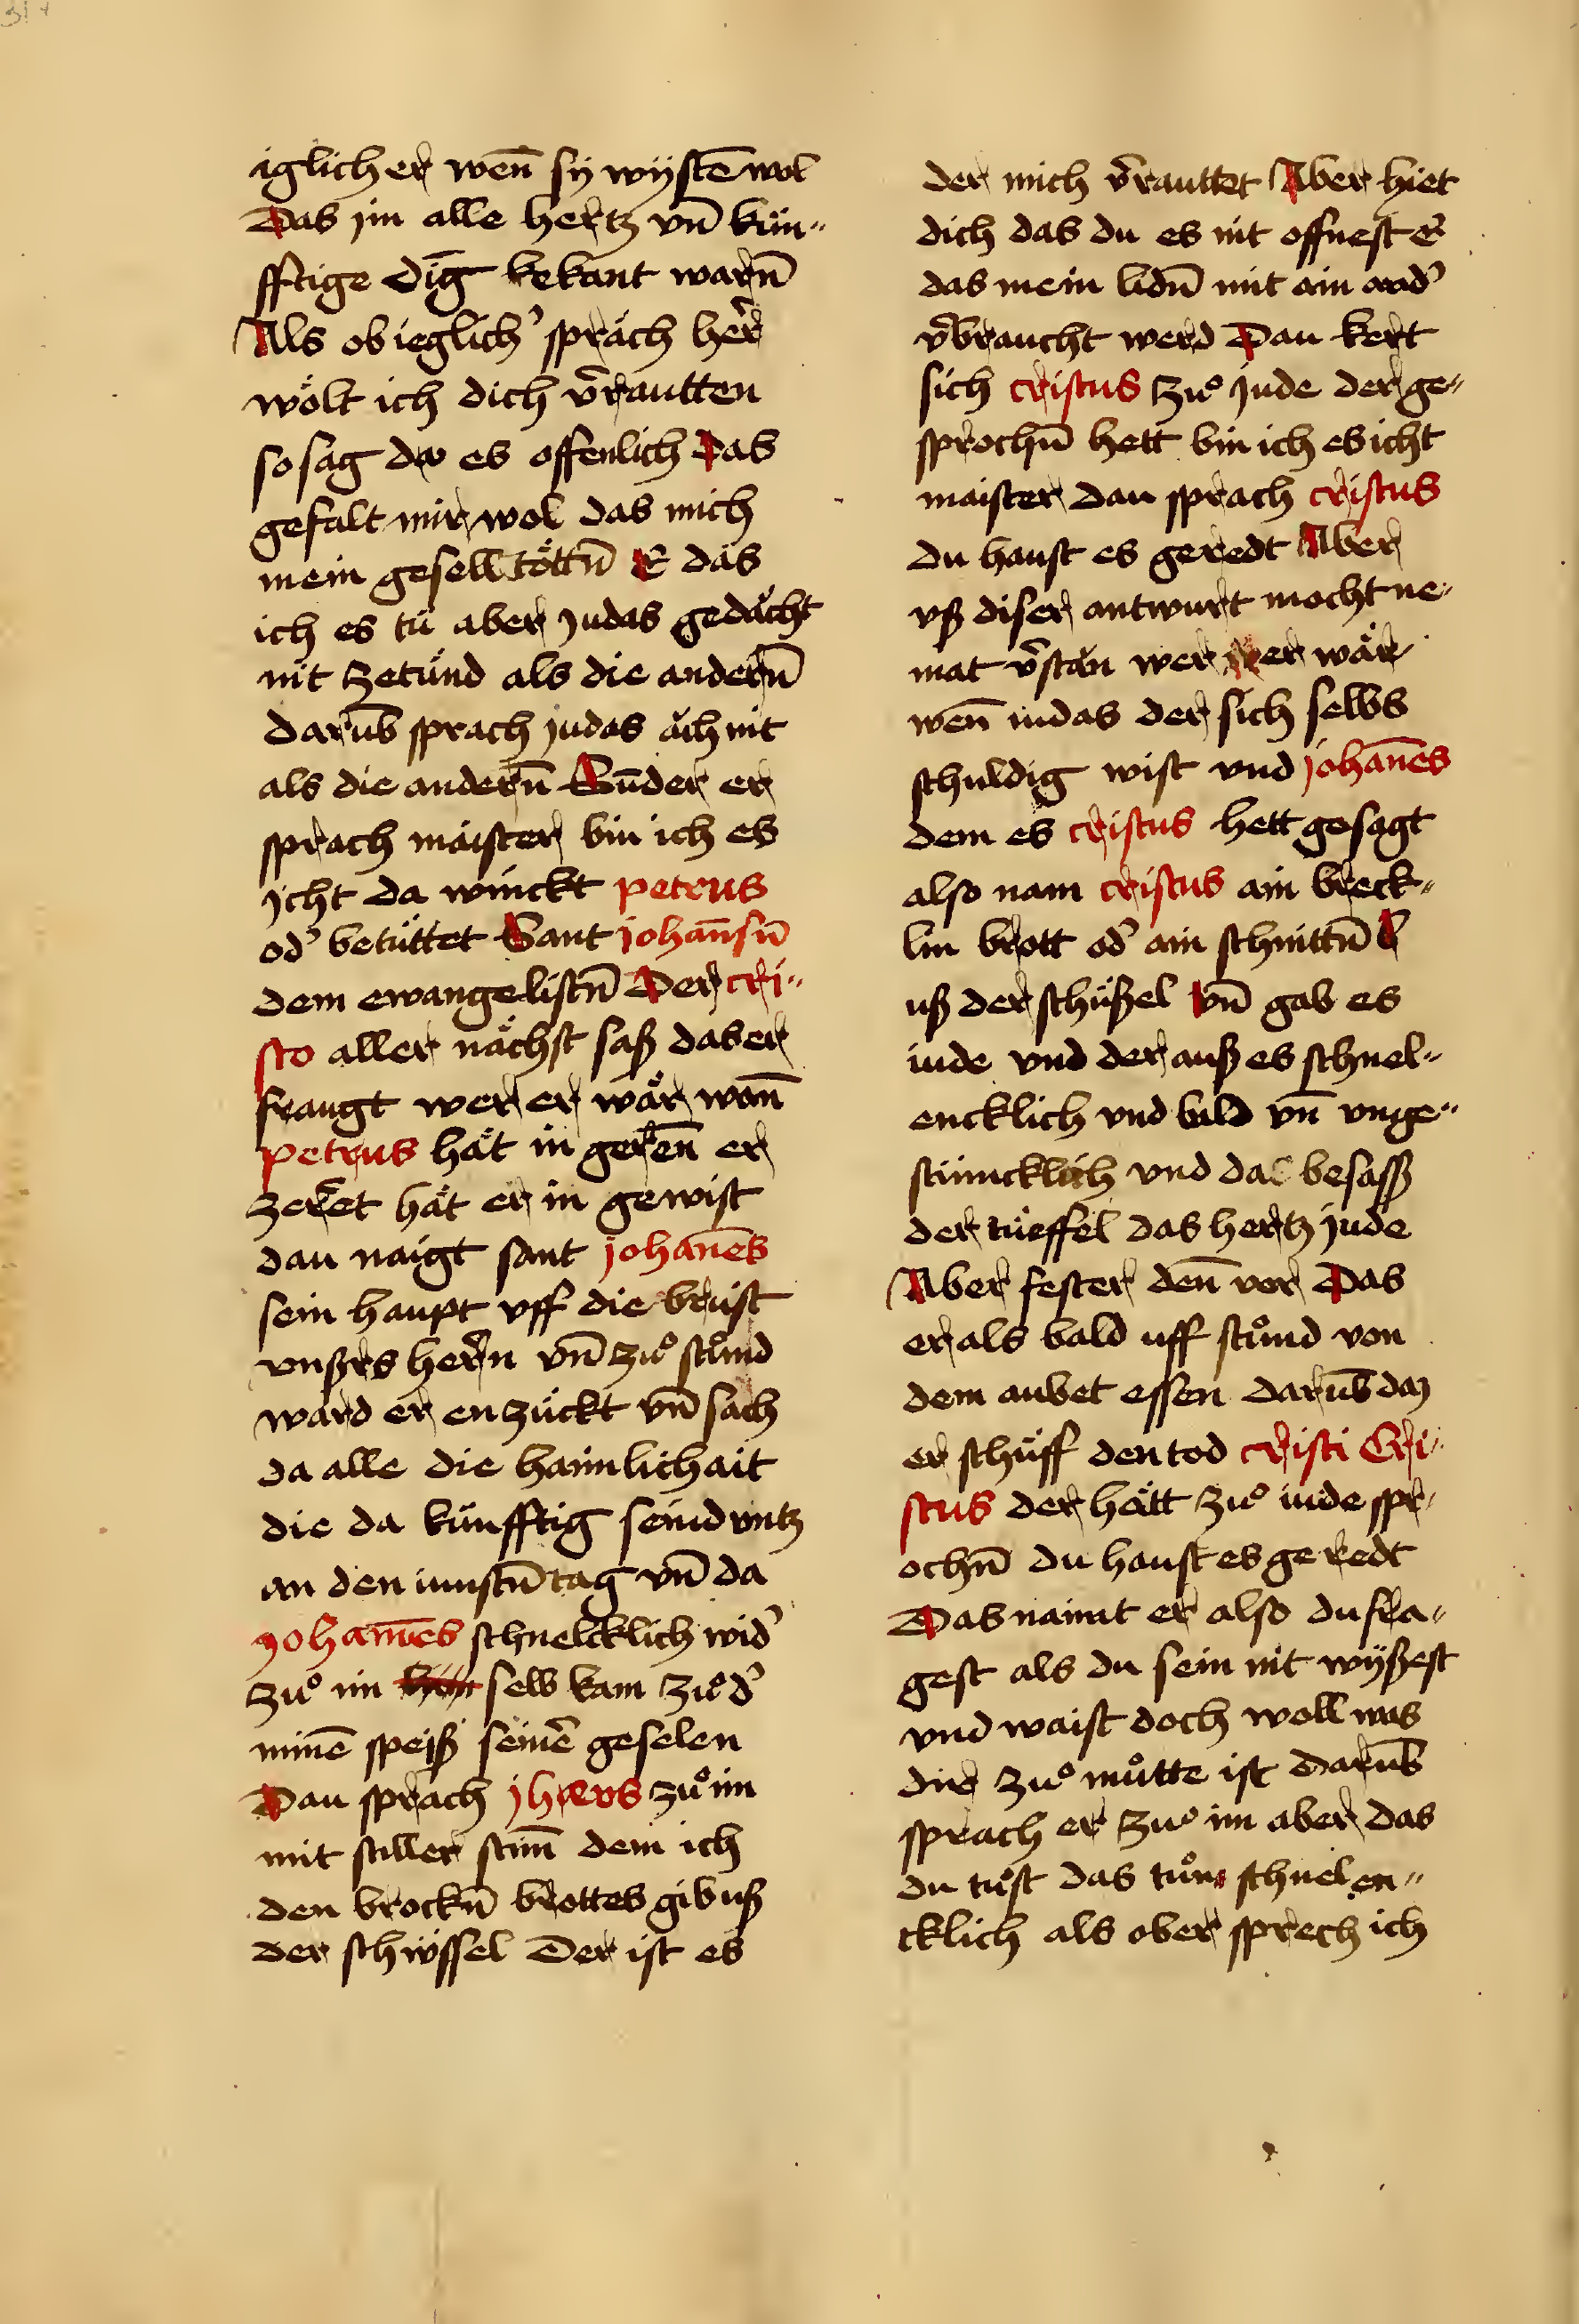 iglicher wen̄ sÿ wÿstē wol
Das jm alle hertz vn̄ kün„
fftige dīg bekant warn̄
Als ob ieglich' spräch her̄
wölt ich dich v̄rautten
so sag du es offenlich Das
gefalt mir wol das mich
mein gesell töttn̄ E das
ich es tü aber judas gedächt
nit zetünd als die andern̄
darūb sprach judas äch nit
als die andern̄ Sūnder er
sprach maister bin ich es
jcht da winckt petrus
od' betüttet Sant johan̄sn̄
dem ewangelistn̄ Der cri„
sto aller nächst saß das er
fraugt wer er wär wan̄
petrus hät in geren̄ er
zeret hät er in gewist
dan naigt sant johan̄es
sein haupt vff die brüst
vnßrs herr̄n vn̄ zuͦ stuͦnd
ward er enzückt vn̄ sach
da alle die haimlichait
die da künfftig seind vntz
an den iunstn̄ tag vn̄ da
johan̄es schnelcklich wid'
zuͦ im selb kam zuͦ d'
minē speiß seinē geselen
Dan sprach jhesus zuͦ im
mit stiller stim̄ dem ich
den brockn̄ brottes gib uß
der schüssel Der ist es
der mich v̄rauttet Aber hiet
dich das du es nit offnest e͞
das mein lidn̄ mit ain and'
v̄braucht werd Dan kert
sich cristus zuͦ jude der ge„
sprochn̄ hett bin ich es icht
maister dan sprach cristus
du hanst es geredt Aber
vß diser antwurt mocht ne„
mat v̄stän wer er wär
wen̄ iudas der sich selbs
schuldig wist vnd johan̄es
dem es cristus hett gesagt
also nam cristus ain breck„
lin brott od' ain schnittn̄
uß der schüßel vn̄ gab es
iude vnd der auß es schnel„
encklich vnd bald vn̄ vnge„
stümcklich vnd das besasß
der tüeffel das hertz jude
Aber fester den̄ vor Das
er als bald uff stuͦnd von
dem aubet essen darūb daz
er schüff den tod cristi Cri„
stus der hätt zuͦ iude spr„
ochn̄ du hanst es geredt
Das naimt er also du fra„
gest als du sein nit wÿßest
vnd waist doch woll was
dir zuͦ muͦtte ist darūb
sprach er zuͦ im aber das
du tuͦst das tuͦn schnelen„
cklich als ober sprech ich